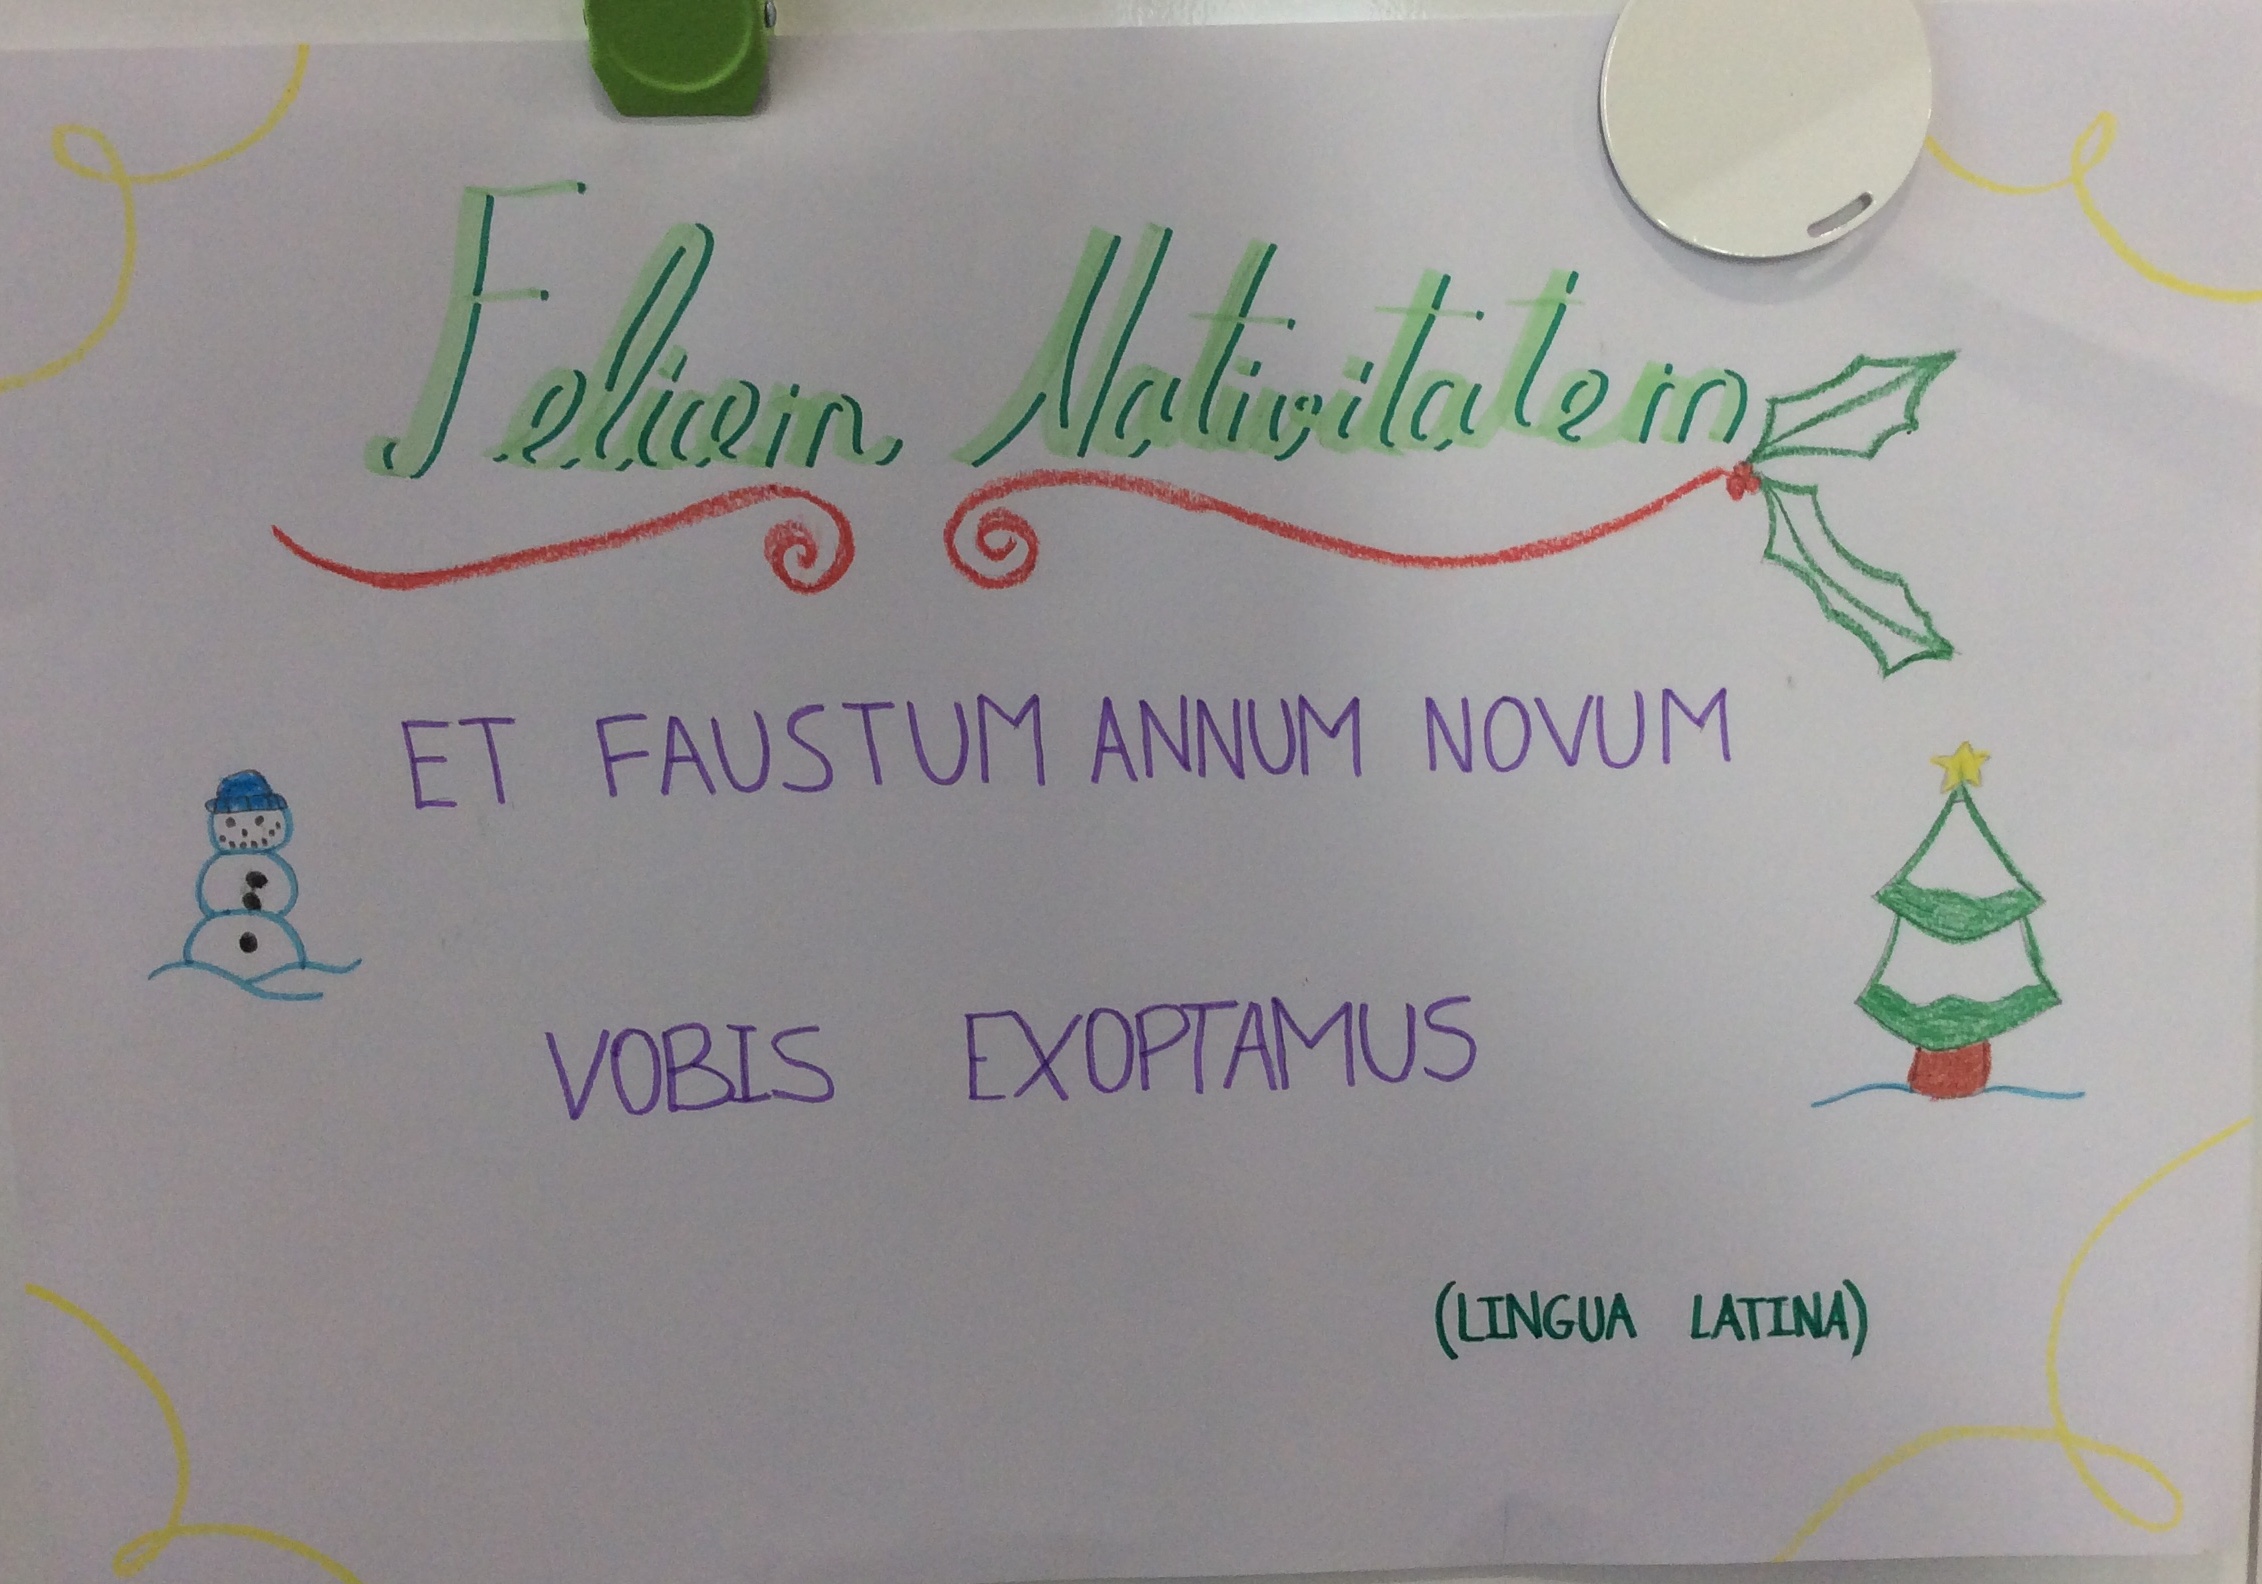 Felicem Nativitatem
ET FAUSTUM ANNUM NOVUM
VOBIS EXOPTAMUS
(LINGUA LATINA)